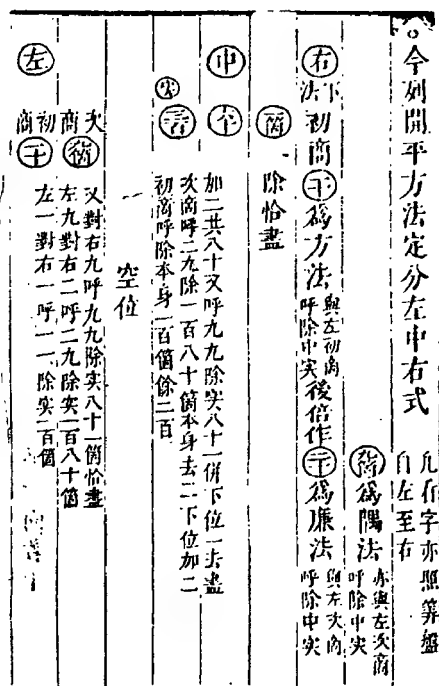 ○今列開平方法定分左中右式
凡在字亦照筭盤
自左至右
九箇為隅法
亦與左次商
呼除中实
右
下法初商十為方法
與左初商
呼除中实
後倍作二十為廉法
與左次商
呼除中实
除恰盡
中
加二共八十又呼九九除实八十一併下位一去盡
次商呼二九除一百八十箇本身去二下位加二
初商呼除本身一百箇餘二百
空位
左
次商
又對右九呼九九除实八十一箇恰盡
左九對右二呼二九除实一百八十箇
初商十
左一對右一呼一一除实一百箇